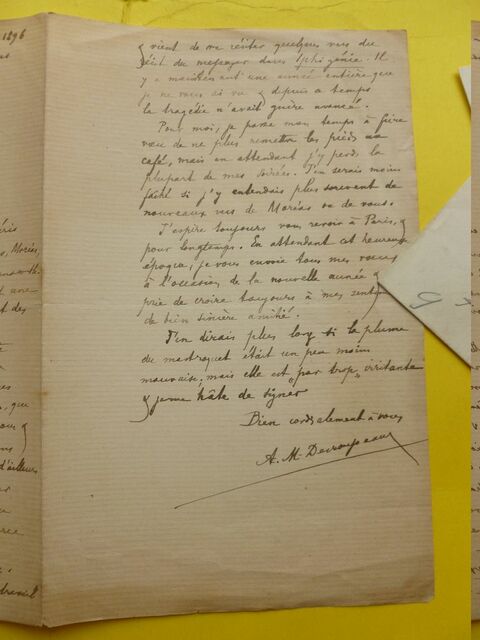 1896
& vient de me réciter quelques vers du
récit du messager dans Iphigénie. Il
y a maintenant une année entière que
je ne vous ai vu & depuis ce temps
la tragédie n'avait guère avancé.
Pour moi, je passe mon temps à faire
vœu de ne plus remettre les pieds au
café, mais en attendant j'y perds la
plupart de mes soirées. J'en serais moins
fâché si j'y entendais plus souvent de
nouveaux vers de Moréas ou de vous.
J'espère toujours vous revoir à Paris, &
pour longtemps. En attendant cet heureuse
époque, je vous envoie tous mes vœux
à l'occasion de la nouvelle année &
prie de croire toujours à mes sent
de bien sincère amitié.
J'en dirais plus long si la plume
du mastroquet était un peu moins
mauvaise, mais elle est "par trop" irritante
& j'ai hâte de signer
Bien cordialement à vous
A. M. Desrousseaux
Moréas,
une
des
que
d'ailleurs